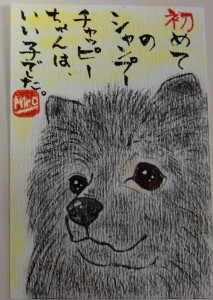 初めて
の
シャンプー
チャッピー
ちゃんは、
いい子でした。
MIKO